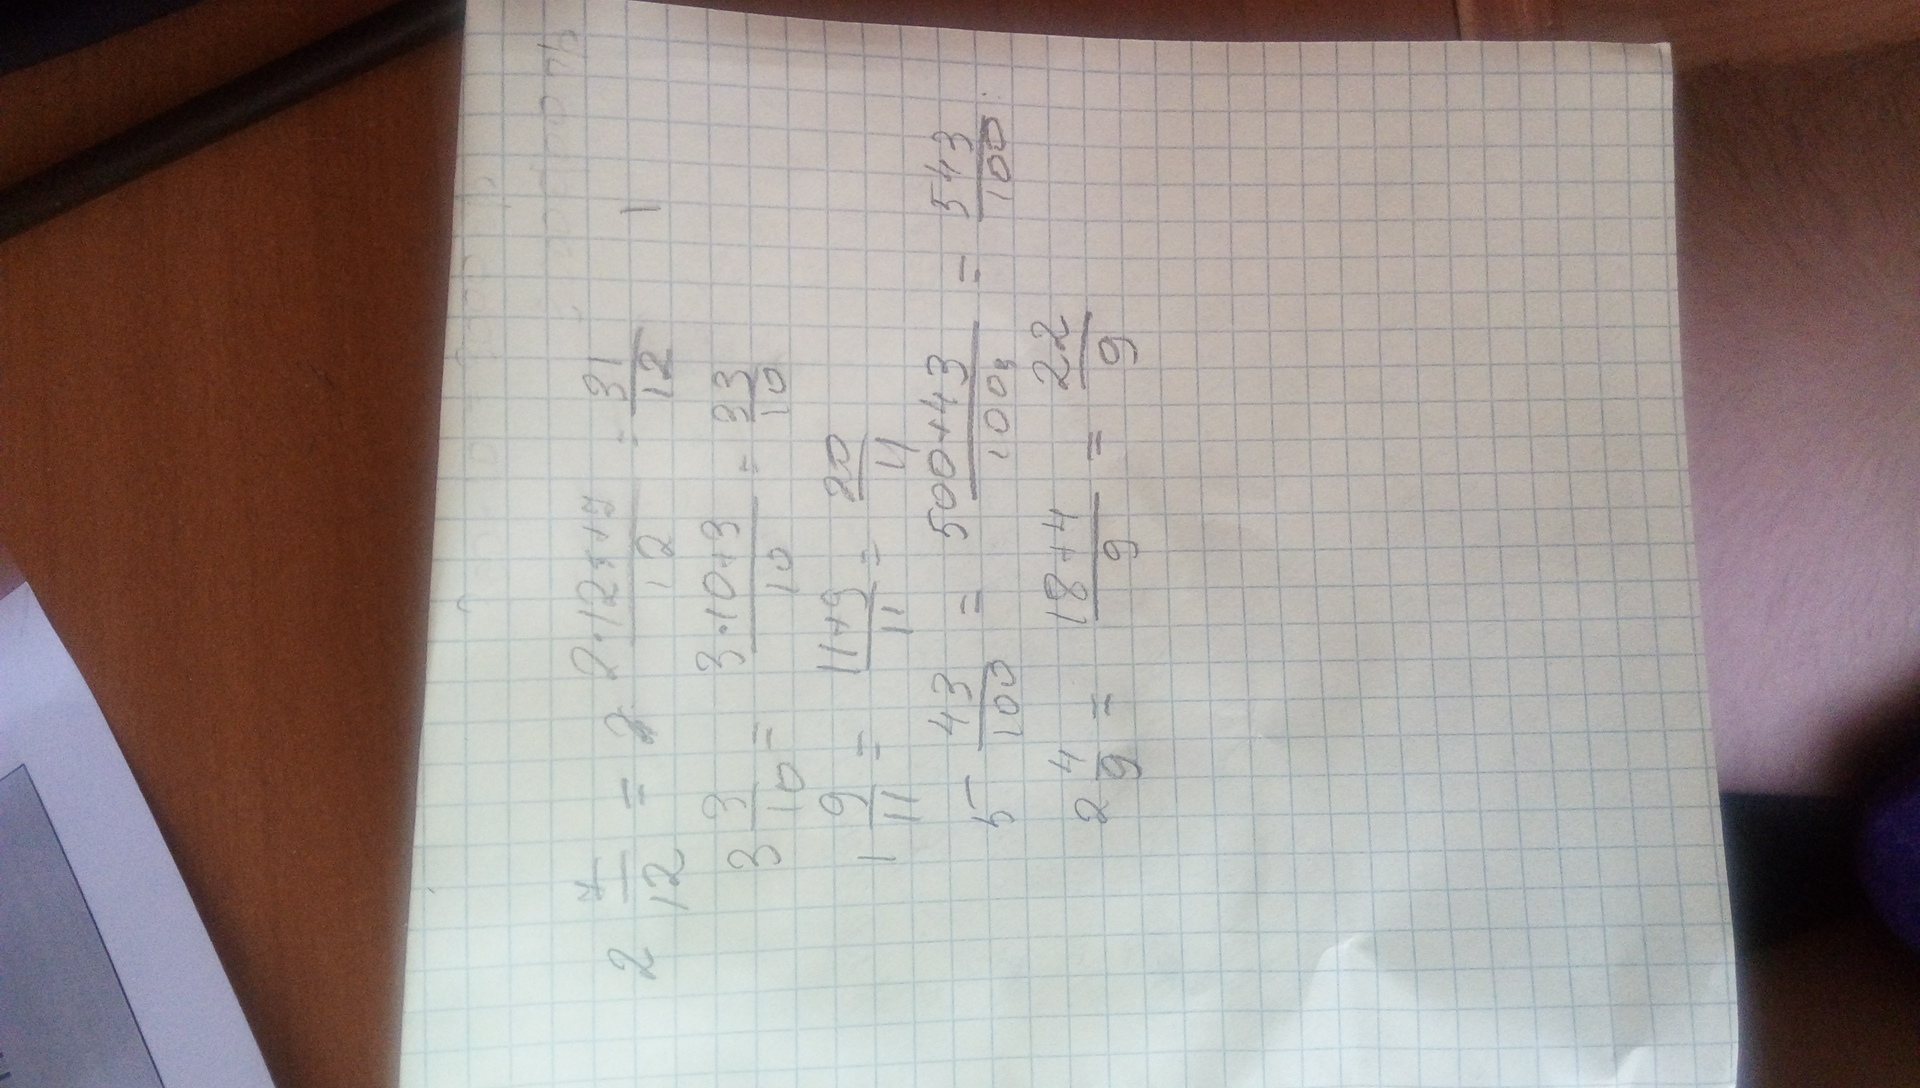 2 7/12 = 2·12+7/12 = 31/12
3 3/10 = 3·10+3/10 = 33/10
1 9/11 = 11+9/11 = 20/11
5 43/100 = 500+43/100 = 543/100
2 4/9 = 18+4/9 = 22/9